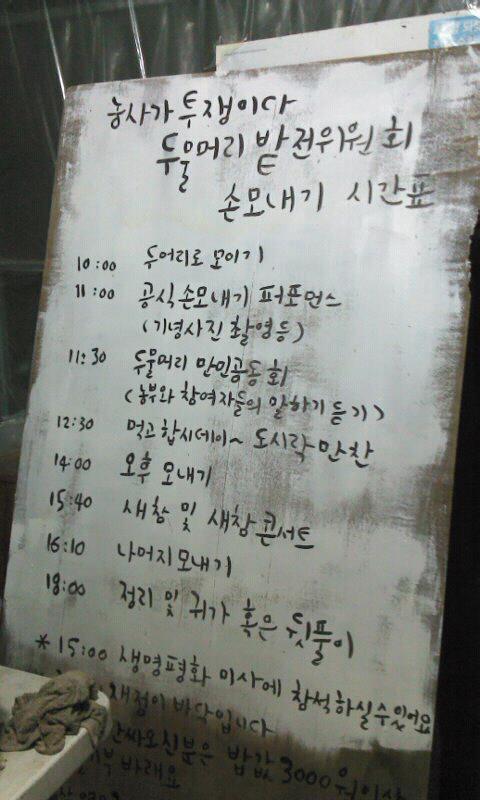 농사가 투쟁이다
두물머리 밭전위원회
손모내기 시간표
10:00 두머리로 모이기
11:00 공식 손모내기 퍼포먼스
(기념사진 촬영등)
11:30 두물머리 만인공동회
(농부와 참여자들의 말하기 듣기)
12:30 먹고합시데이~ 도시락만찬
14:00 오후 모내기
15:40 새참 및 새참 콘서트
16:10 나머지 모내기
18:00 정리 및 귀가 혹은 뒷풀이
* 15:00 생명평화 미사에 참석하실수있어요
재정이 바닥입니다
싸오신분은 밥값 3000원이상
바래요